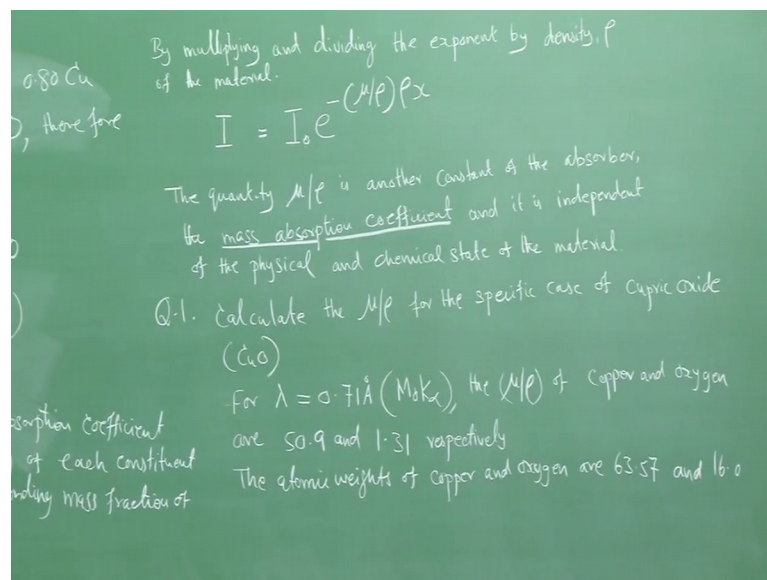 0.80 Cu
), therefore
)
sorption coefficient
of each constituent
nding mass fraction of
By multiplying and dividing the exponent by density, ρ
of the material.
I = I₀e^-(μ/ρ)ρx
The quantity μ/ρ is another constant of the absorber,
the mass absorption coefficient and it is independent
of the physical and chemical state of the material.
Q.1. Calculate the μ/ρ for the specific case of cupric oxide
(CuO)
For λ = 0.71Å (MoKα), the (μ/ρ) of copper and oxygen
are 50.9 and 1.31 respectively
The atomic weights of copper and oxygen are 63.57 and 16.0